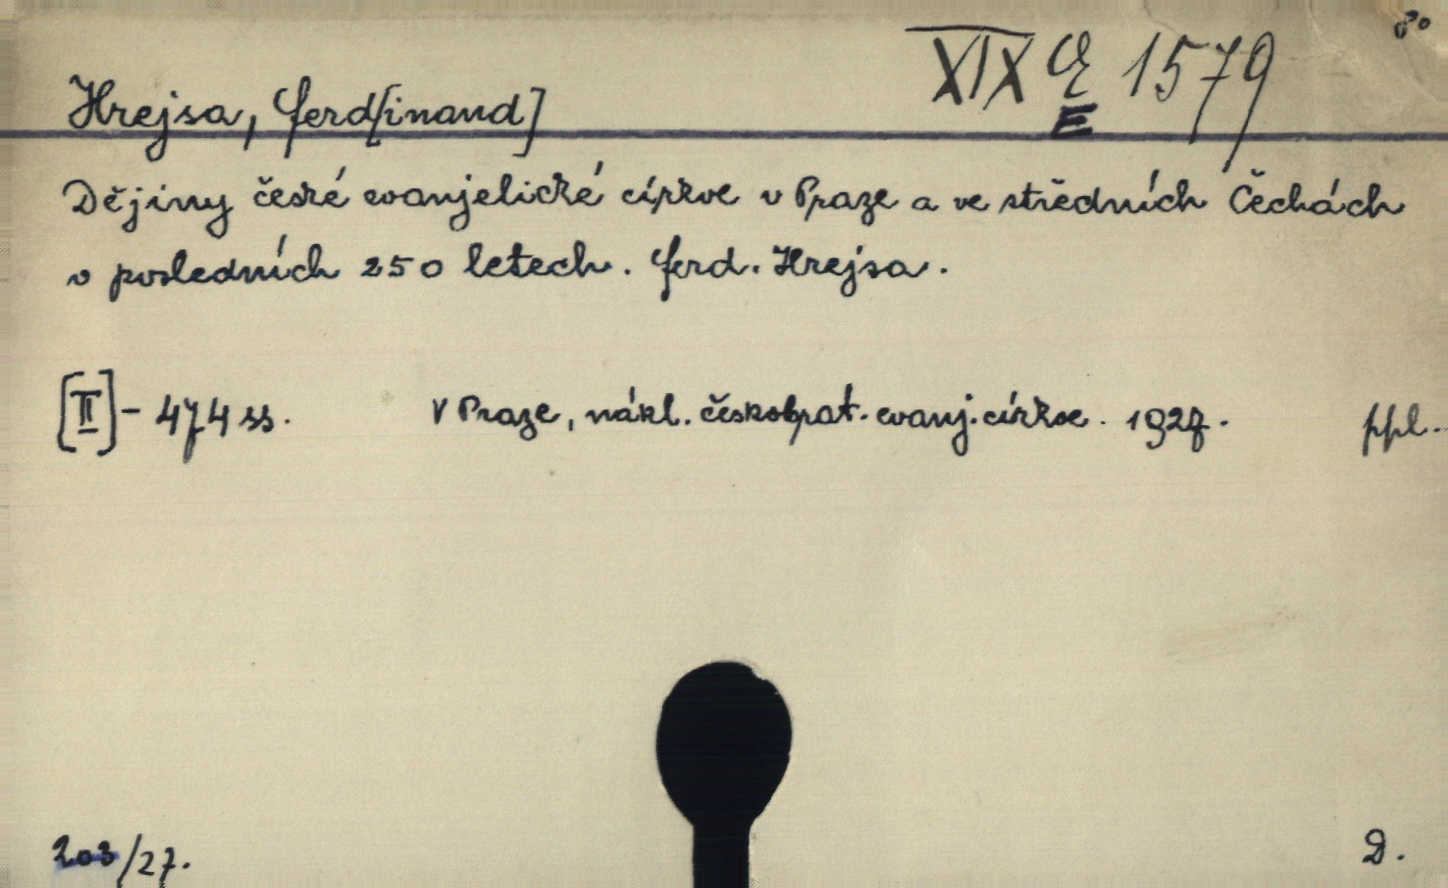 XIX E 1579
Hrejsa, Ferd[inand]
Dějiny české evanjelické církve v Praze a ve středních Čechách
v posledních 250 letech. Ferd. Hrejsa.
[II] - 474 ss. V Praze, nákl. českobrat. evanj. církve. 1927. ppl.
203/27. D.